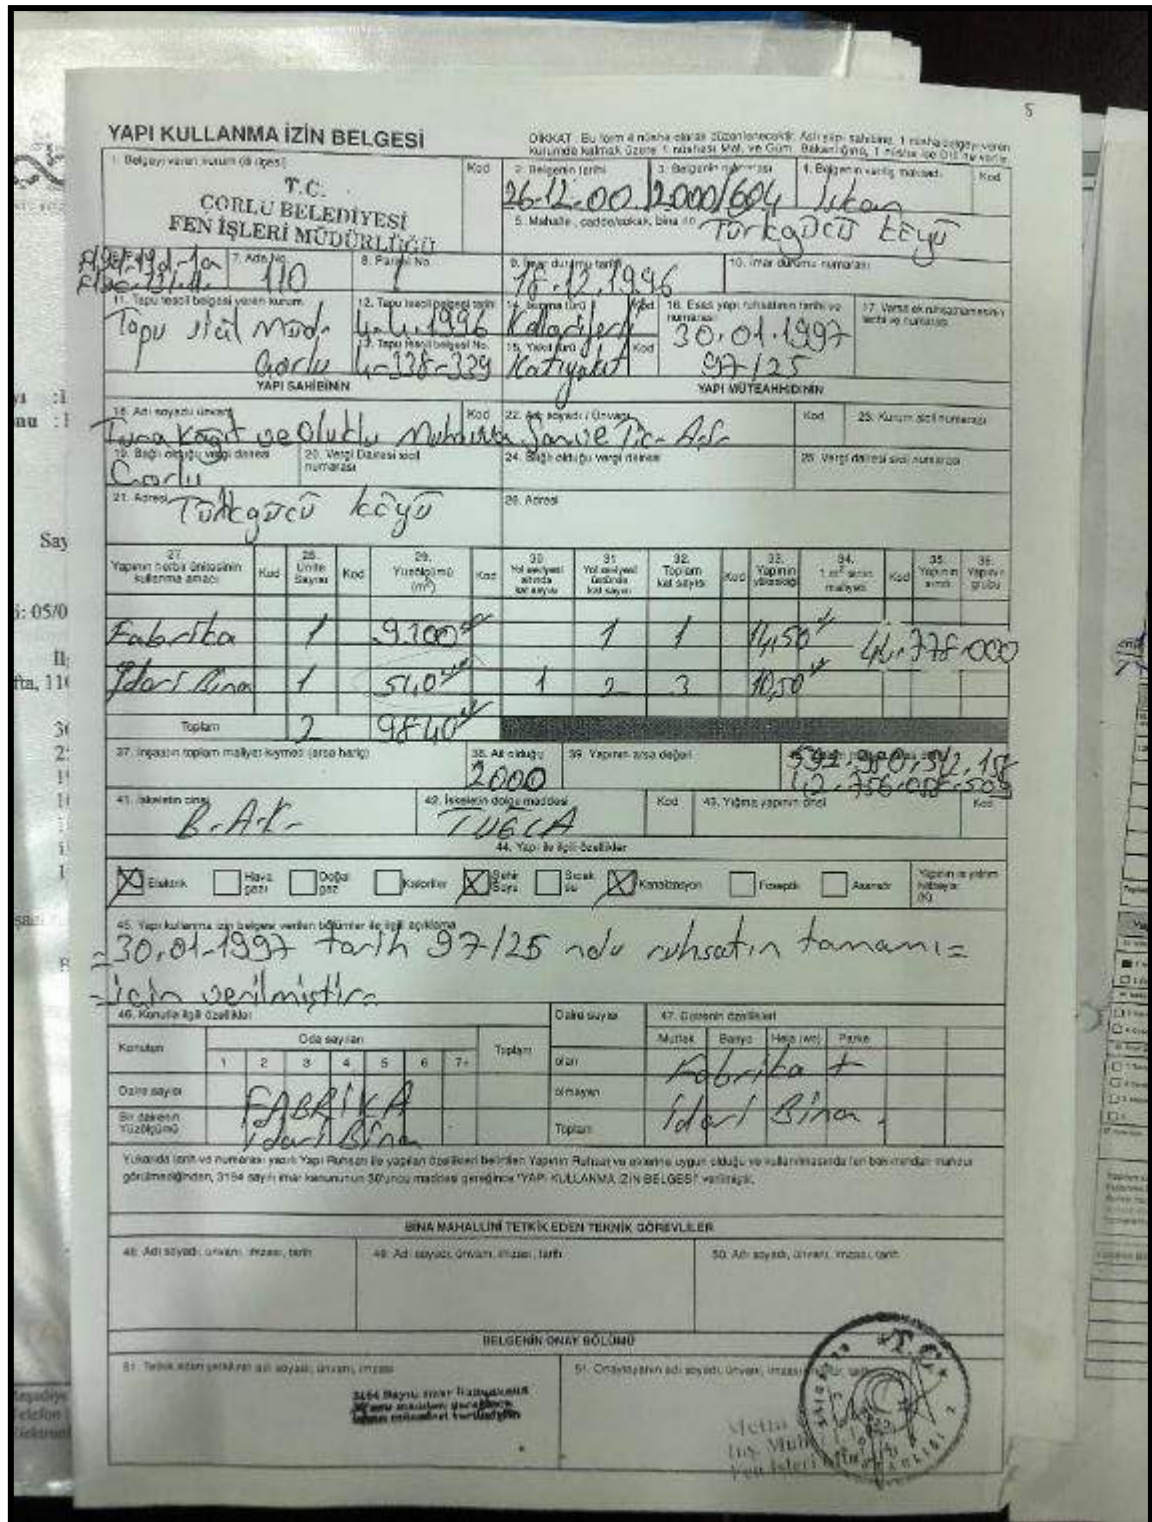 5
YAPI KULLANMA İZİN BELGESİ
DİKKAT : Bu form 4 nüsha olarak düzenlenecektir. Aslı yapı sahibine, 1 nüsha belgeyi veren
kurumda kalmak üzere 1 nüshası Mal. ve Güm. Bakanlığına, 1 nüsha ise DİE'ne verilir.
1. Belgeyi veren kurum (di ilçesi)
Kod
2. Belgenin tarihi
3. Belgenin numarası
4. Belgenin veriliş maksadı
Kod
T.C.
ÇORLU BELEDİYESİ
FEN İŞLERİ MÜDÜRLÜĞÜ
26.12.00
2000/604
İskan
5. Mahalle, cadde/sokak, bina no
Türkgücü köyü
7. Ada No.
110
8. Parsel No.
1
9. İmar durumu tarihi
18.12.1996
10. İmar durumu numarası
11. Tapu tescil belgesi veren kurum
Tapu Sicil Müd.
Çorlu
12. Tapu tescil belgesi tarihi
4.4.1996
13. Tapu tescil belgesi No.
4-338-339
14. Isınma türü
Kod
Kaloriferli
15. Yakıt türü
Kod
Katıyakıt
16. Esas yapı ruhsatının tarihi ve
numarası
30.01.1997
97/125
17. Varsa ek ruhsatnamesinin
tarihi ve numarası
YAPI SAHİBİNİN
YAPI MÜTEAHHİDİNİN
18. Adı soyadı ünvanı
Kod
22. Adı soyadı / Ünvanı
Kod
23. Kurum sicil numarası
Tuna Kağıt ve Oluklu Mukavva San ve Tic. A.Ş.
19. Bağlı olduğu vergi dairesi
Çorlu
20. Vergi Dairesi sicil
numarası
24. Bağlı olduğu vergi dairesi
25. Vergi dairesi sicil numarası
21. Adresi
Türkgücü köyü
26. Adresi
27.
Yapının herbir ünitesinin
kullanma amacı
Kod
28.
Ünite
Sayısı
Kod
29.
Yüzölçümü
(m²)
Kod
30
Yol seviyesi
altında
kat sayısı
31
Yol seviyesi
üstünde
kat sayısı
32.
Toplam
kat sayısı
Kod
33.
Yapının
yüksekliği
34.
1 m² sinin
maliyeti
Kod
35.
Yapının
sınıfı
36.
Yapının
grubu
Fabrika 1 9.300 1 1 14,50
İdari Bina 1 540 1 2 3 10,50
Toplam 2 9840
37. İnşaatın toplam maliyet kıymeti (arsa hariç)
38. Ait olduğu
2000
39. Yapının arsa değeri
41. İskeletin cinsi
B.A.K.
42. İskeletin dolgu maddesi
TUĞLA
Kod
43. Yığma yapının cinsi
Kod
44. Yapı ile ilgili özellikler
Elektrik
Hava
gazı
Doğal
gaz
Kalorifer
Şehir
Suyu
Sıcak
su
Kanalizasyon
Foseptik
Asansör
45. Yapı kullanma izin belgesi verilen bölümler ile ilgili açıklama
=30.01.1997 tarih 97/125 nolu ruhsatın tamamı=
=için verilmiştir=
46. Konutla ilgili özellikler
Daire sayısı
47. Dairenin özellikleri
Konutun
Oda sayıları
Toplam
olan
Mutfak
Banyo
Hela (wc)
Parke
1 2 3 4 5 6 7+
Daire sayısı
FABRİKA
olmayan
Fabrika +
Bir dairenin
Yüzölçümü
idari Bina
Toplam
idari Bina.
Yukarıda tarih ve numarası yazılı Yapı Ruhsatı ile yapılan özellikleri belirtilen Yapının Ruhsat ve eklerine uygun olduğu ve kullanılmasında fen bakımından mahzur
görülmediğinden, 3194 sayılı imar kanununun 30'uncu maddesi gereğince "YAPI KULLANMA İZİN BELGESİ" verilmiştir.
BİNA MAHALLİNİ TETKİK EDEN TEKNİK GÖREVLİLER
48. Adı soyadı, ünvanı, imzası, tarih
49. Adı soyadı, ünvanı, imzası, tarih
50. Adı soyadı, ünvanı, imzası, tarih
BELGENİN ONAY BÖLÜMÜ
51. Tetkik eden yetkilinin adı soyadı, ünvanı, imzası
51. Onaylayanın adı soyadı, ünvanı, imzası
3194 Sayılı imar kanununun
T.C.
Say